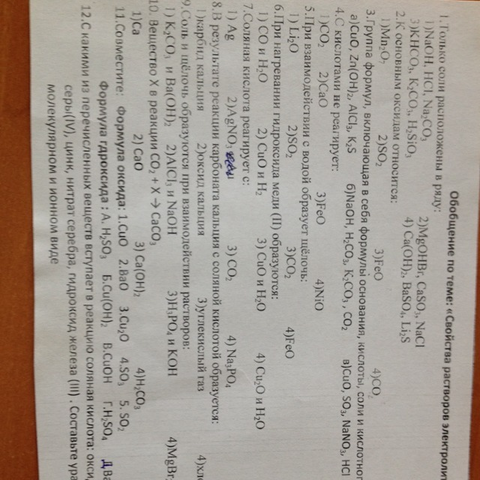 Обобщение по теме: «Свойства растворов электролит
1.Только соли расположены в ряду:
1)NaOH, HCl, Na₂CO₃ 2)MgOHBr, CaSO₄, NaCl
3)KHCO₃, K₂CO₃, H₂SiO₃ 4) Ca(OH)₂, BaSO₄, Li₂S
2.К основным оксидам относится:
1)Mn₂O₇ 2)SO₂ 3)FeO 4)CO₂
3.Группа формул, включающая в себя формулы основания, кислоты, соли и кислотног
а)CuO, Zn(OH)₂, AlCl₃, K₂S б)NaOH, H₂CO₃, K₂CO₃, CO₂ в)CuO, SO₃, NaNO₃, HCl
4.С кислотами не реагирует:
1)CO₂ 2)CaO 3)FeO 4)NiO
5.При взаимодействии с водой образует щёлочь:
1)Li₂O 2)SO₂ 3)CO₂ 4)FeO
6.При нагревании гидроксида меди (II) образуются:
1) CO и H₂O 2) CuO и H₂ 3) CuO и H₂O 4) Cu₂O и H₂O
7.Соляная кислота реагирует с:
1) Ag 2)AgNO₃ 3) CO₂ 4) Na₃PO₄
8.В результате реакции карбоната кальция с соляной кислотой образуется:
1)карбид кальция 2)оксид кальция 3)углекислый газ 4)хло
9.Соль и щёлочь образуются при взаимодействии растворов:
1) K₂CO₃ и Ba(OH)₂ 2)AlCl₃ и NaOH 3)H₃PO₄ и KOH 4)MgBr₂
10. Вещество X в реакции CO₂ + X → CaCO₃
1)Ca 2) CaO 3) Ca(OH)₂ 4)H₂CO₃
11.Соместите: Формула оксида: 1.CuO 2.BaO 3.Cu₂O 4.SO₃ 5. SO₂
Формула гдроксида: А. H₂SO₃ Б.Cu(OH)₂ В.CuOH Г.H₂SO₄ Д.Ba
12.С какими из перечисленных веществ вступает в реакцию соляная кислота: окси
серы(IV), цинк, нитрат серебра, гидроксид железа (III) . Составьте ура
молекулярном и ионном виде